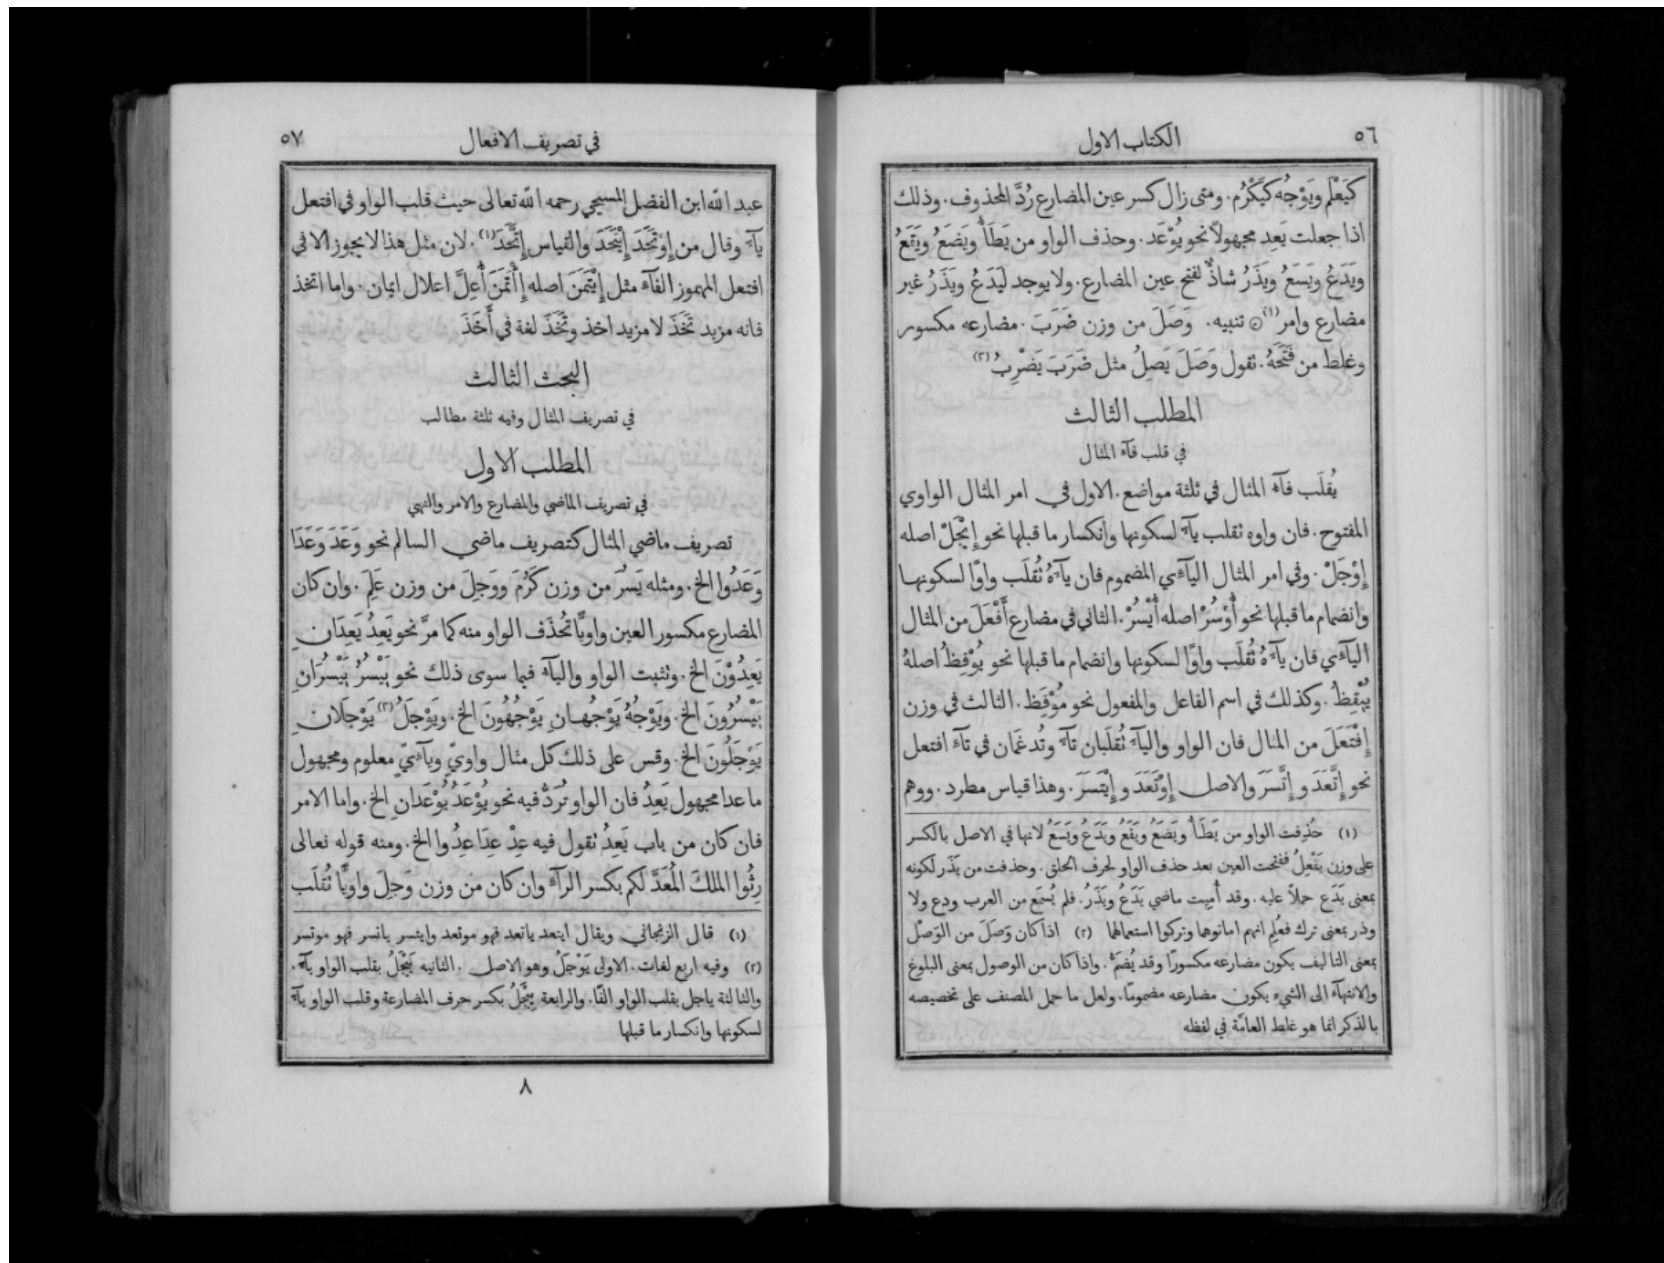 ٥٦
الكتاب الاول
كيَعْلَم ويَوْجُه كيَكْرُم. ومتى زال كسر عين المضارع رُدَّ المحذوف. وذلك
اذا جعلت يَعِد مجهولًا نحو يُوْعَد. وحذف الواو من يَطَأُ ويَضَعُ ويَقَعُ
ويَدَعُ ويَسَعُ ويَذَرُ شاذٌّ لفتح عين المضارع. ولا يوجد ليَدَعُ ويَذَرُ غير
مضارع وامر (١) ۞ تنبيه. وَصَلَ من وزن ضَرَبَ. مضارعه مكسور
وغلط من فَتَحَهُ. نقول وَصَلَ يَصِلُ مثل ضَرَبَ يَضْرِبُ (٢)
المطلب الثالث
في قلب فآء المثال
يُقلَب فآء المثال في ثلثة مواضع. الاول في امر المثال الواوي
المفتوح. فان واوه تقلب يآءً لسكونها وانكسار ما قبلها نحو إِيْجَلْ اصله
إِوْجَلْ. وفي امر المثال اليآءي المضموم فان يآءهُ تُقلَب واوًا لسكونها
وانضمام ما قبلها نحو أُوْسُرْ اصله أُيْسُرْ. الثاني في مضارع أَفْعَلَ من المثال
اليآءي فان يآءهُ تُقلَب واوًا لسكونها وانضمام ما قبلها نحو يُوْقِظُ اصلهُ
يُيْقِظُ. وكذلك في اسم الفاعل والمفعول نحو مُوْقِظ. الثالث في وزن
إِفْتَعَلَ من المثال فان الواو واليآء تُقلَبان تآءً وتُدغَمان في تآء افتعل
نحو إِتَّعَدَ و إِتَّسَرَ والاصل إِوْتَعَدَ و إِيْتَسَرَ. وهذا قياس مطرد. ووهم
(١) حُذِفت الواو من يَطَأُ ويَضَعُ ويَقَعُ ويَدَعُ ويَسَعُ لانها في الاصل بالكسر
على وزن يَفْعِلُ ففتحت العين بعد حذف الواو لحرف الحلق. وحذفت من يَذَر لكونه
بمعنى يَدَع حملاً عليه. وقد أُمِيت ماضي يَدَعُ ويَذَرُ. فلم يُسْمَع من العرب ودع ولا
وذر بمعنى ترك فعُلِم انهم اماتوهما وتركوا استعمالهما (٢) اذا كان وَصَلَ من الوَصْل
بمعنى التاليف يكون مضارعه مكسورًا وقد يُضَمُّ. واذا كان من الوصول بمعنى البلوغ
والانتهآء الى الشيء يكون مضارعه مضمومًا. ولعل ما حمل المصنف على تخصيصه
بالذكر انما هو غلط العامَّة في لفظه
٥٧
في تصريف الافعال
عبد الله ابن الفضل المسيحي رحمه الله تعالى حيث قلب الواو في افتعل
يآءً وقال من إِوْتَحَدَ إِيْتَحَدَ والقياس إِتَّحَدَ (١). لان مثل هذا لا يجوز الا في
افتعل المهموز الفآء مثل إِيْتَمَنَ اصله إِأْتَمَنَ أُعِلَّ اعلال ايمان. واما اتخذ
فانه مزيد تَخَذَ لا مزيد اخذ وتَخَذَ لغة في أَخَذَ
البحث الثالث
في تصريف المثال وفيه ثلثة مطالب
المطلب الاول
في تصريف الماضي والمضارع والامر والنهي
تصريف ماضي المثال كتصريف ماضي السالم نحو وَعَدَ وَعَدَا
وَعَدُوا الخ. ومثله يَسُرَ من وزن كَرُمَ ووَجِلَ من وزن عَلِمَ. وان كان
المضارع مكسور العين واويًّا تُحذَف الواو منه كما مرَّ نحو يَعِدُ يَعِدَانِ
يَعِدُوْنَ الخ. وتثبت الواو واليآء فيما سوى ذلك نحو يَيْسُرُ يَيْسُرَانِ
يَيْسُرُونَ الخ. ويَوْجُهُ يَوْجُهانِ يَوْجُهُونَ الخ. ويَوْجَلُ (٢) يَوْجَلَانِ
يَوْجَلُونَ الخ. وقس على ذلك كل مثال واويّ ويآءيّ معلوم ومجهول
ما عدا مجهول يَعِدُ فان الواو تُرَدُّ فيه نحو يُوْعَدُ يُوْعَدَانِ الخ. واما الامر
فان كان من باب يَعِدُ نقول فيه عِدْ عِدَا عِدُوا الخ. ومنه قوله تعالى
رِثُوا الملكَ المُعَدَّ لكم بكسر الرآء وان كان من وزن وَجِلَ واويًّا تُقلَب
(١) قال الزنجاني ويقال ايتعد ياتعد فهو موتعد وايتسر ياتسر فهو موتسر
(٢) وفيه اربع لغات. الاولى يَوْجَلُ وهو الاصل. الثانيه يَيْجَلُ بقلب الواو يآءً.
والثالثة ياجل بقلب الواو الفًا. والرابعة يِيْجَلُ بكسر حرف المضارعة وقلب الواو يآءً
لسكونها وانكسار ما قبلها
٨